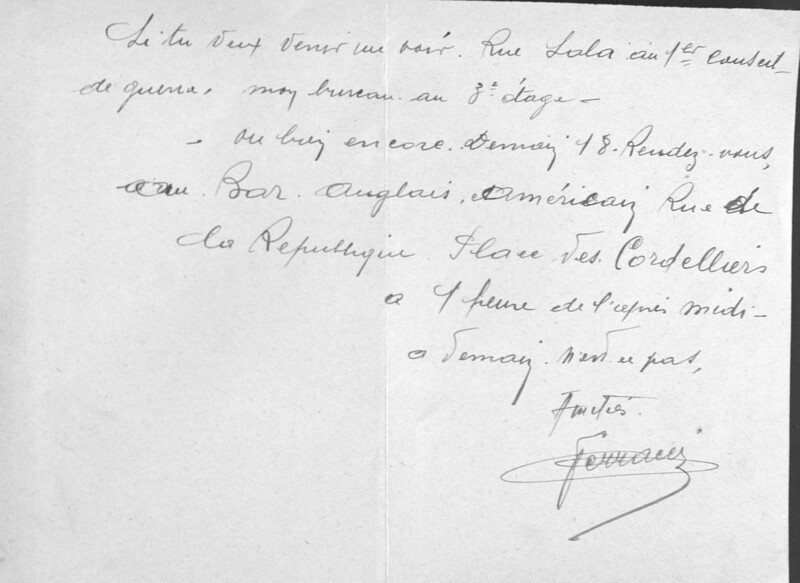 Si tu veux venir me voir. Rue Sala au 1er Conseil-
de guerre, mon bureau au 3e étage -
- ou bien encore. Demain 18. Rendez-vous,
au. Bar. Anglais, Américain Rue de
la République Place des. Cordelliers
a 1 heure de l'après midi -
a demain. n'est ce pas,
Amitiés.